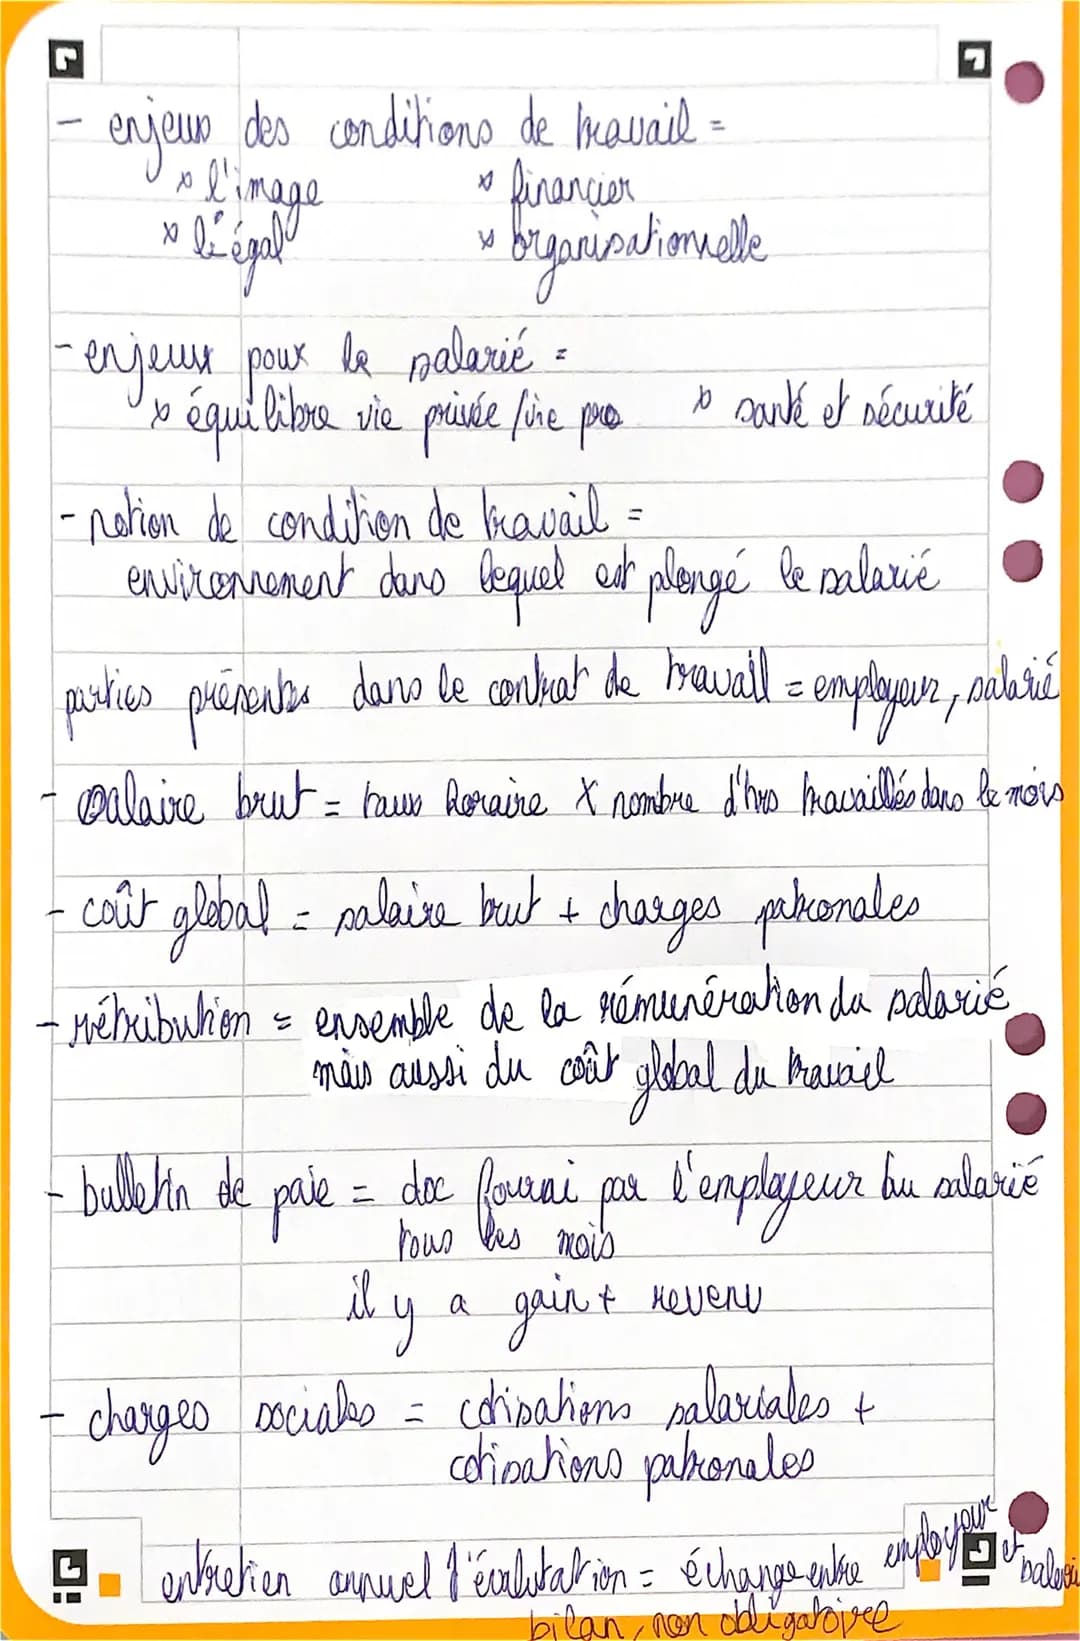 - enjeux des conditions de travail =
x l'image x financier
x légal x organisationnelle
- enjeux pour le salarié =
x équilibre vie privée/vie pro x santé et sécurité
- notion de condition de travail =
environnement dans lequel est plongé le salarié
parties présentes dans le contrat de travail = employeur, salarié
- salaire brut = taux horaire X nombre d'hrs travaillés dans le mois
- coût global = salaire brut + charges patronales
- rétribution = ensemble de la rémunération du salarié
mais aussi du coût global du travail
- bulletin de paie = doc fourni par l'employeur au salarié
tous les mois
il y a gain + revenu
- charges sociales = cotisations salariales +
cotisations patronales
entretien annuel d'évalutation = échange entre employeur et salarié
bilan, non obligatoire